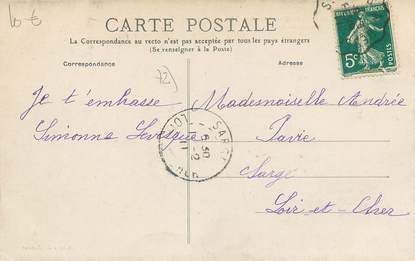 10 €
CARTE POSTALE
La Correspondance au recto n'est pas acceptée par tous les pays étrangers
(Se renseigner à la Poste)
Correspondance
Adresse
72
Je t'embrasse
Simonne Levesque
Mademoiselle Andrée
Pavie
Sargé
Loir et Cher
5c
SARGÉ
6 30
-2
11